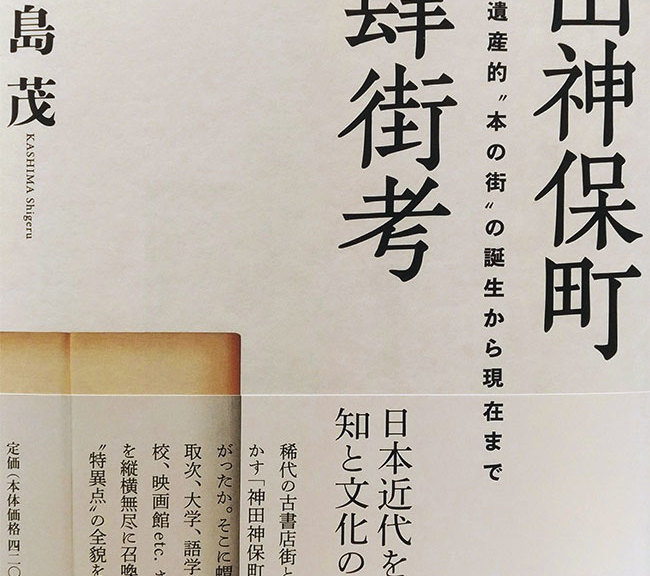 田神保町
遺産的〝本の街〟の誕生から現在まで
肆街考
島 茂
KASHIMA Shigeru
日本近代を
知と文化の
稀代の古書店街と
かす「神田神保町
がったか。そこに蝟
取次、大学、語学
校、映画館etc. さ
を縦横無尽に召喚
〝特異点〟の全貌を
定価(本体価格四二〇